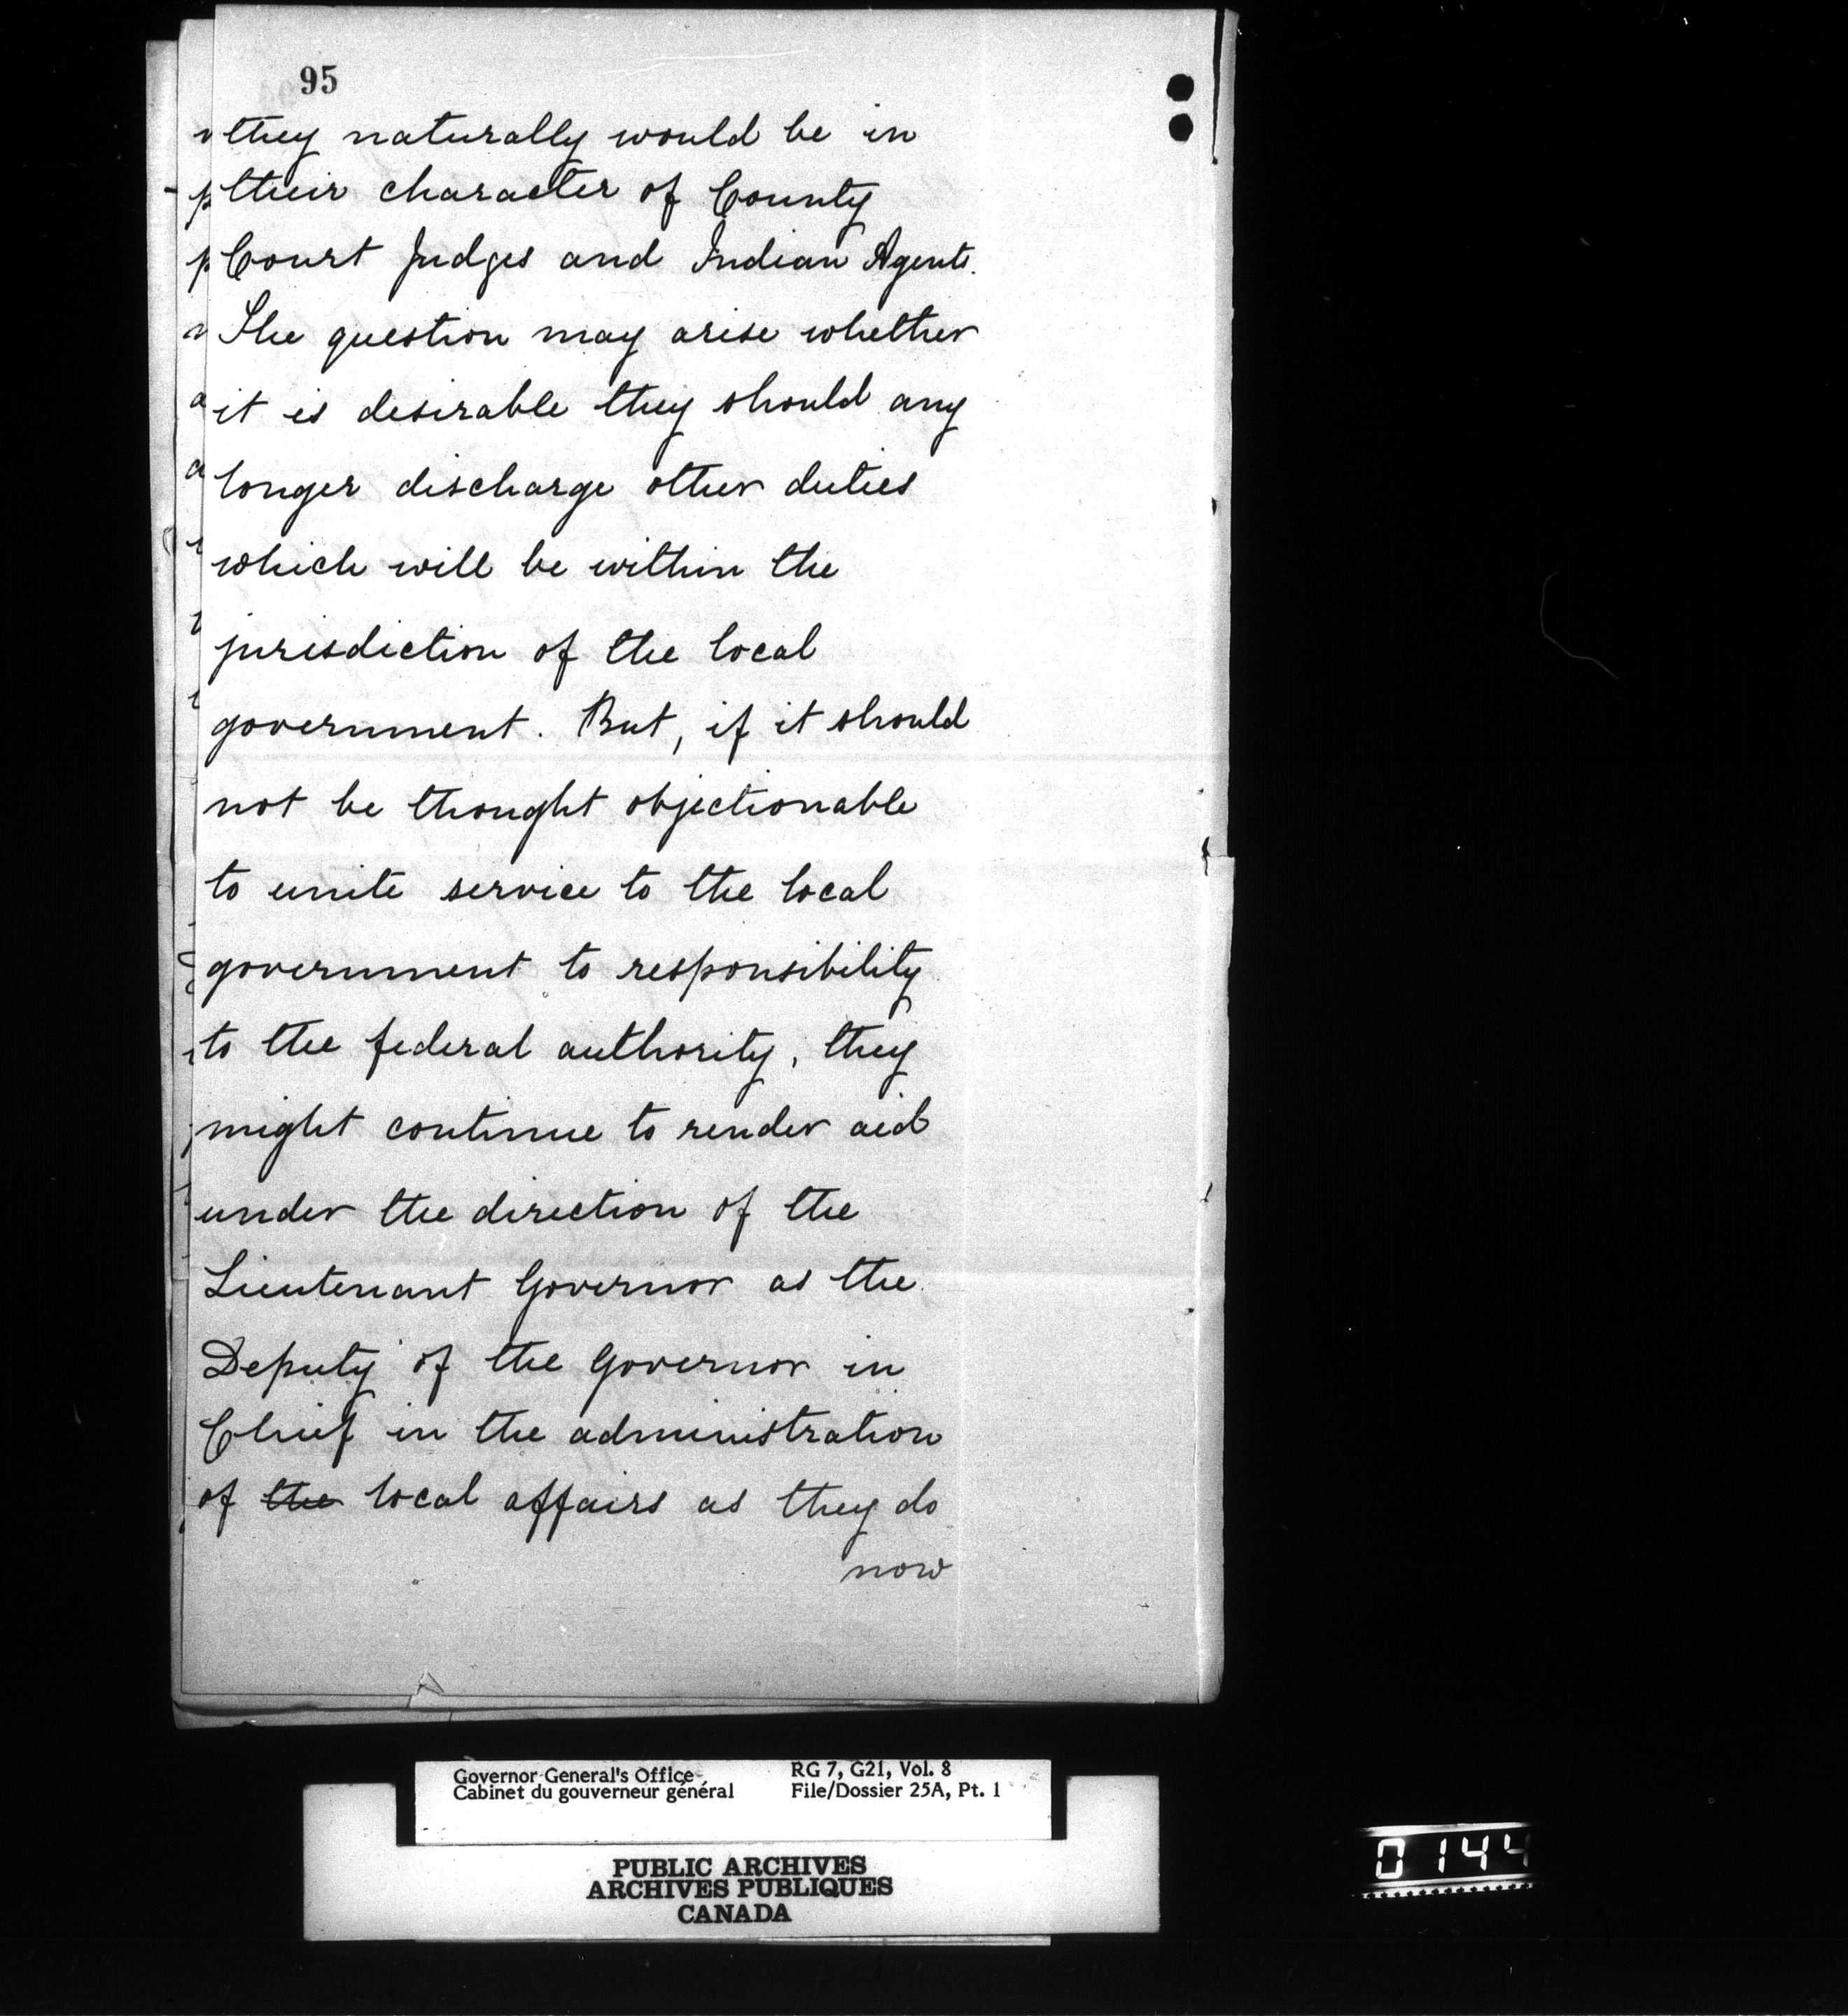 95
they naturally would be in
their character of County
Court Judges and Indian Agents.
The question may arise whether
it is desirable they should any
longer discharge other duties
which will be within the
jurisdiction of the local
government. But, if it should
not be thought objectionable
to unite service to the local
government to responsibility
to the federal authority, they
might continue to render aid
under the direction of the
Lieutenant Governor as the
Deputy of the Governor in
Chief in the administration
of the local affairs as they do
now
Governor General's Office RG 7, G21, Vol. 8
Cabinet du gouverneur général File/Dossier 25A, Pt. 1
PUBLIC ARCHIVES
ARCHIVES PUBLIQUES
CANADA
0144